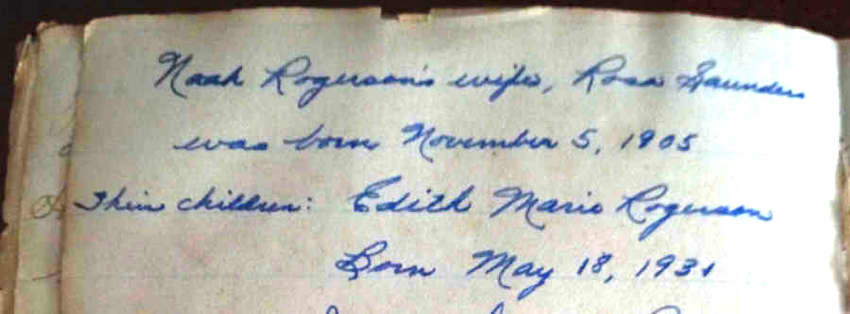 Noah Rogerson's wife, Rosa Saunders
was born November 5, 1905
Their children: Edith Marie Rogerson
Born May 18, 1931